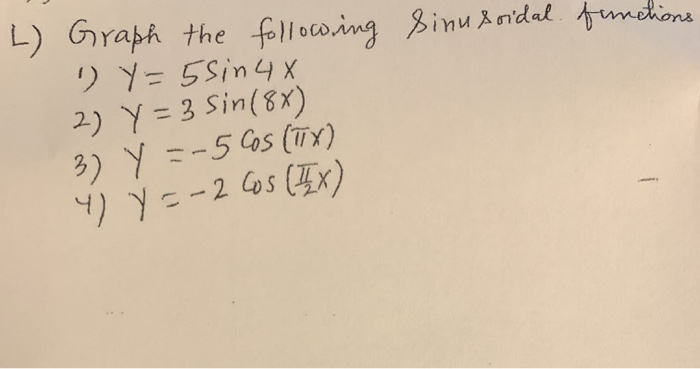 L) Graph the following Sinusoidal functions
1) Y = 5 Sin 4 X
2) Y = 3 Sin(8X)
3) Y = -5 Cos (πX)
4) Y = -2 Cos (π/2 X)